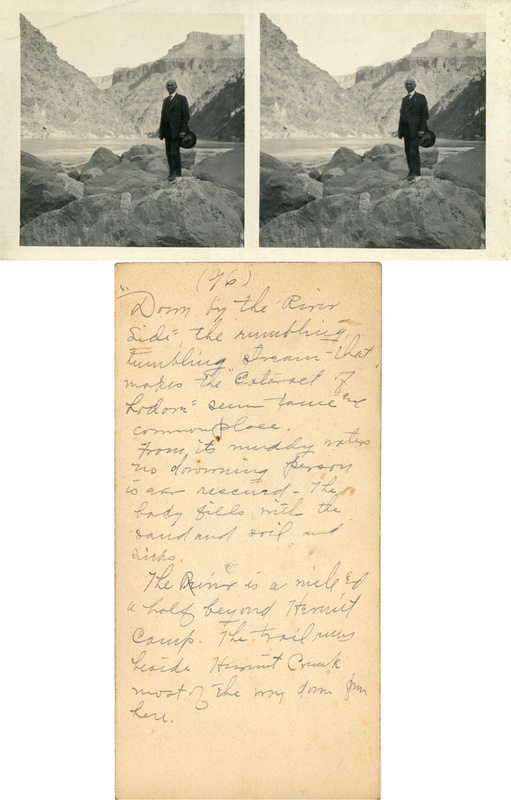 (76)
Down by the River
Side - the rumbling,
tumbling stream - that
makes the "Cataract of
Lodore" seem tame and
commonplace.
From its muddy waters
no drowning person
is ever rescued - The
body fills with the
sand and soil and
sinks.
The River is a mile &
a half beyond Hermit
Camp. The trail runs
beside Hermit Creek
most of the way down from
here.